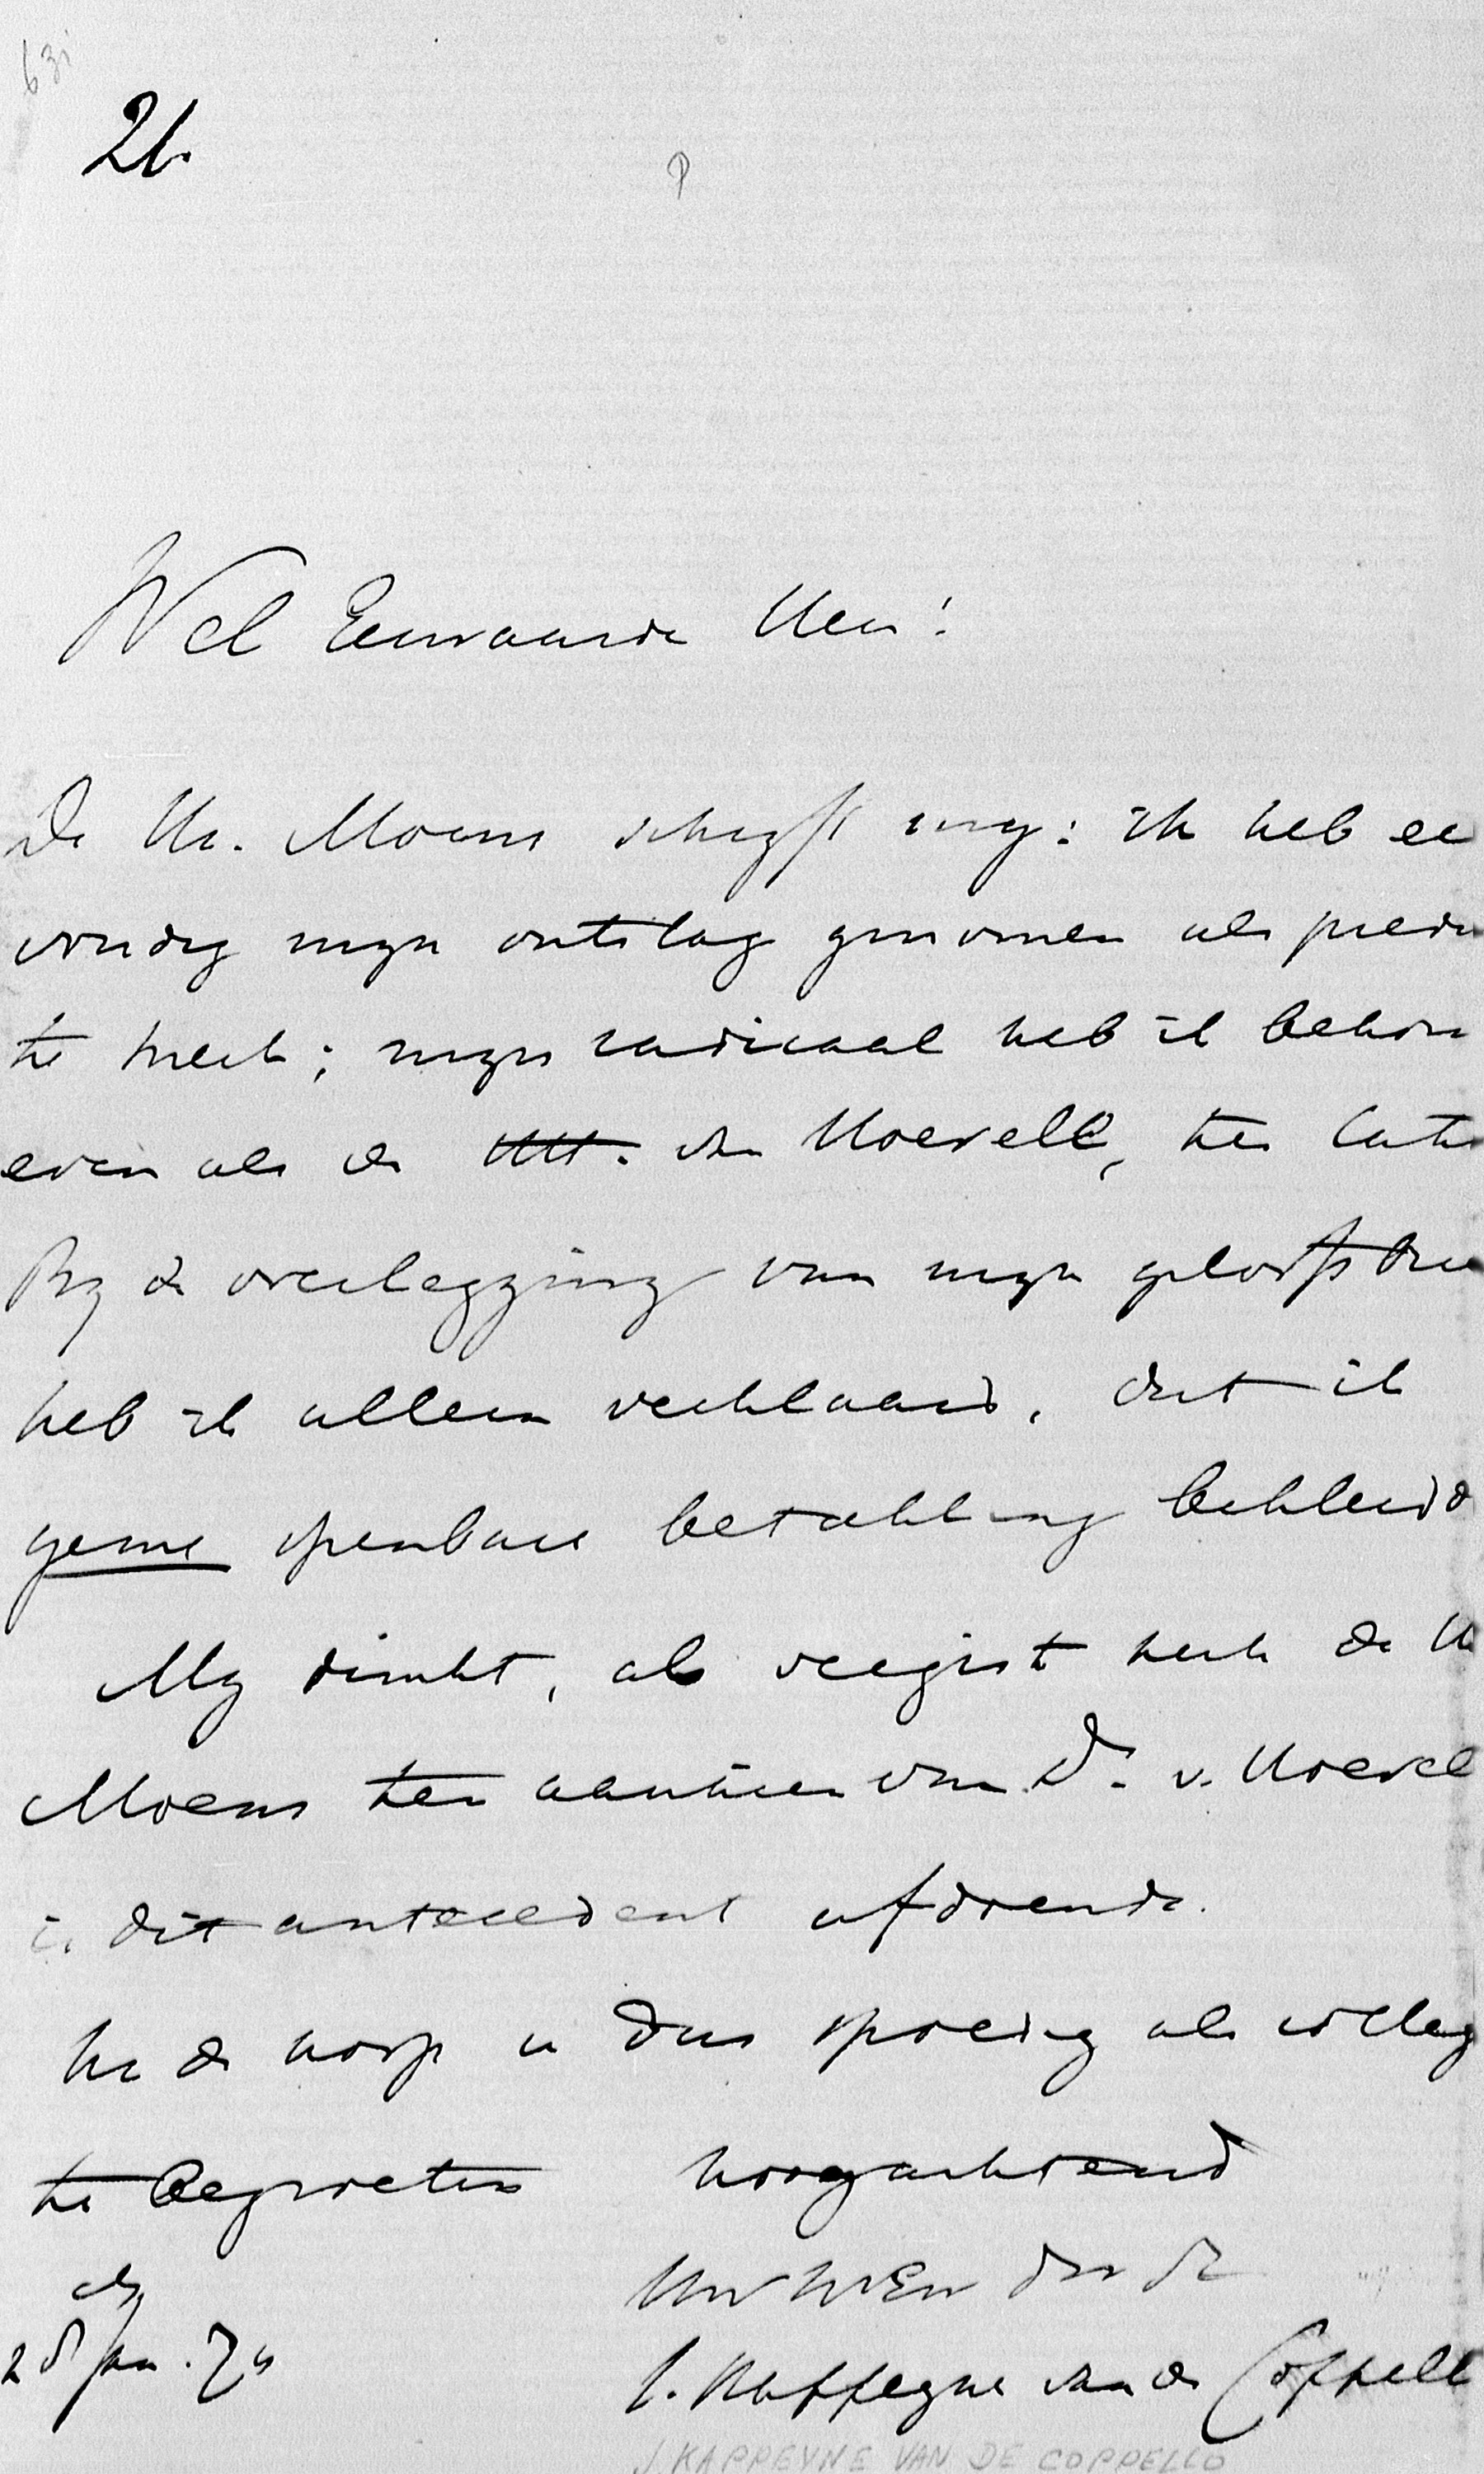 63i
26.
P
Wel Eerwaarde Heer!
De Hr. Moens schryft my: ik heb ee
voudig myn ontslag genomen als predi
te Sneek; myn radicaal heb ik behou
even als de van Hoevell,
By de overlegging van myn geloofsbrie
heb ik alleen verklaard, dat ik
geene openbare betrekking bekleed
My dunkt, als vergist zich de H
Moens ten aanzien van Dr. v. Hoevel
is dit antecedent afdoende.
In de hoop u dus spoedig als colleg
te begroeten hoogachtend
Uw WEw
28 Jan. 74
J. Kappeyne van de Coppell
J. KAPPEYNE VAN DE COPPELLO